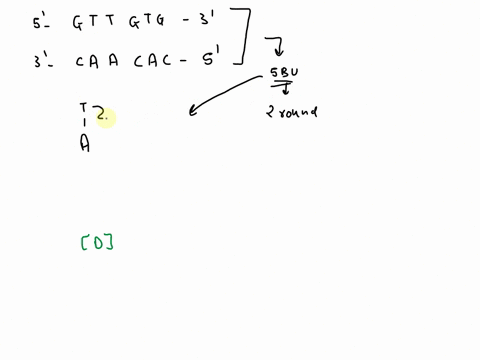 5'- GTT GTG - 3'
3'- CAA CAC - 5'
5BU
2 round
T 2.
A
[D]